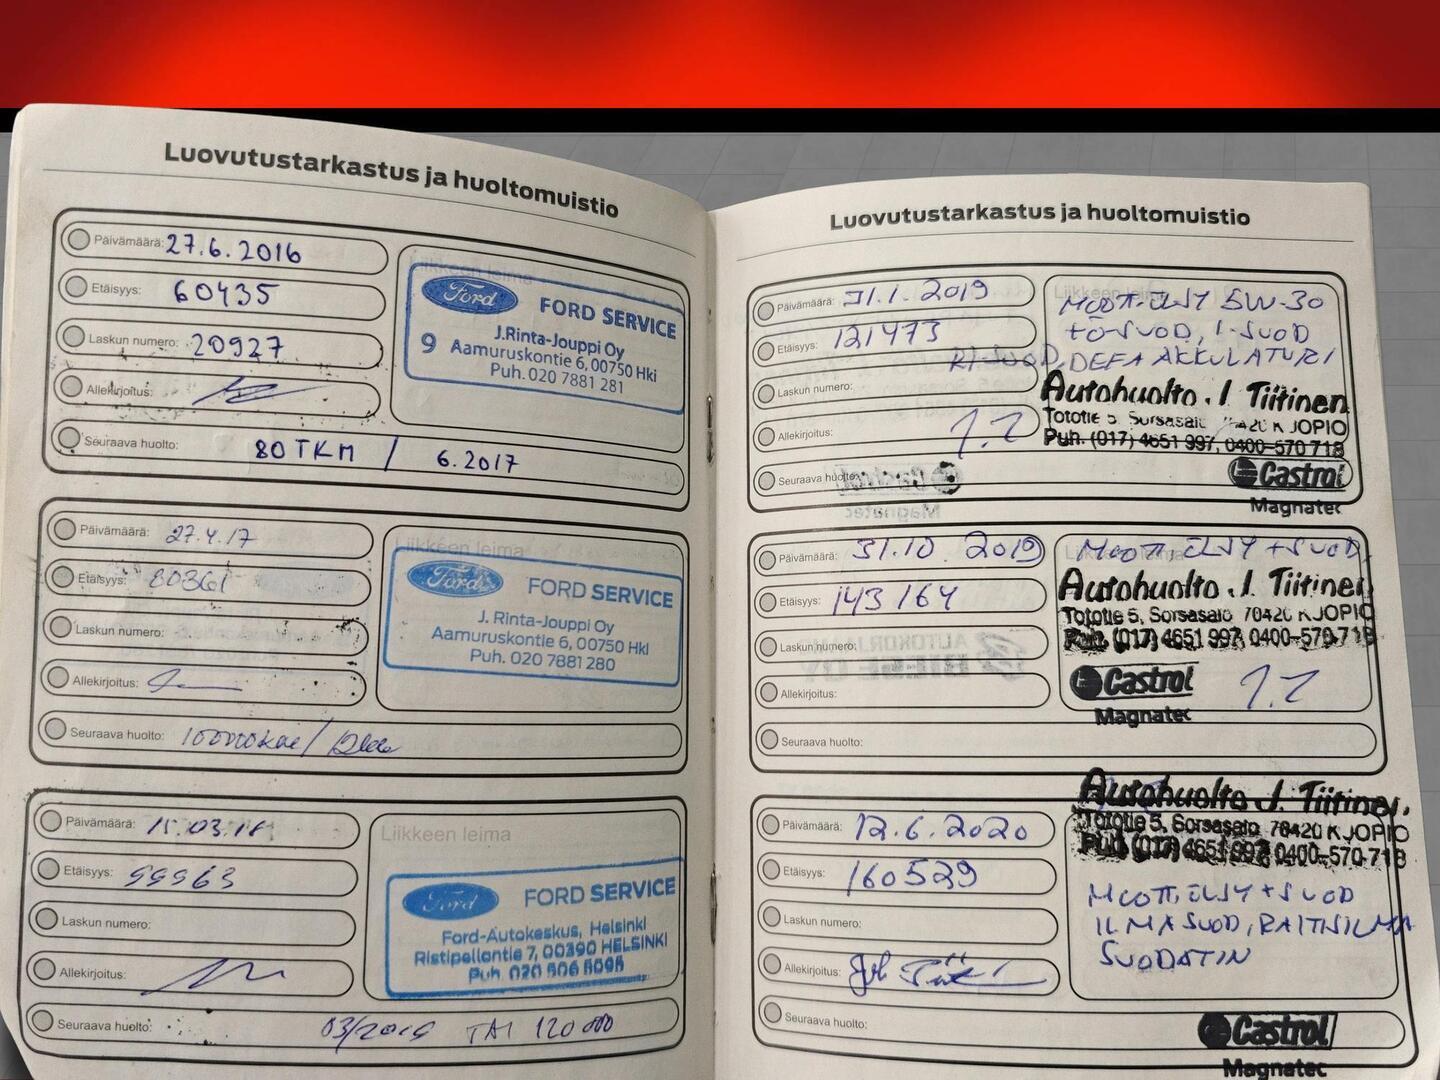 Luovutustarkastus ja huoltomuistio
Päivämäärä: 27.6.2016
Etäisyys: 60435
Laskun numero: 20927
Allekirjoitus:
Seuraava huolto: 80 TKM / 6.2017
Liikkeen leima
Ford FORD SERVICE
J.Rinta-Jouppi Oy
9 Aamuruskontie 6, 00750 Hki
Puh. 020 7881 281
Päivämäärä: 27.4.17
Etäisyys: 80361
Laskun numero:
Allekirjoitus:
Seuraava huolto:
Liikkeen leima
Ford FORD SERVICE
J. Rinta-Jouppi Oy
Aamuruskontie 6, 00750 Hki
Puh. 020 7881 280
Päivämäärä: 15.03.18
Etäisyys: 99963
Laskun numero:
Allekirjoitus:
Seuraava huolto: 03/2019 TAI 120 000
Liikkeen leima
Ford FORD SERVICE
Ford-Autokeskus, Helsinki
Ristipellontie 7, 00390 HELSINKI
Puh. 020 506
Luovutustarkastus ja huoltomuistio
Päivämäärä: 31.1.2019
Etäisyys: 121473
Laskun numero:
Allekirjoitus:
Seuraava huolto:
Liikkeen leima
MOOTT.ÖLJY 5W-30
+Ö-SUOD, I-SUOD
RI-SUOD, DEFA AKKULATURI
Autohuolto J. Tiitinen
Tototie 5, Sorsasalo 70420 KUOPIO
Puh. (017) 4651 997, 0400-570 718
Castrol
Magnatec
Päivämäärä: 31.10 2019
Etäisyys: 143164
Laskun numero:
Allekirjoitus:
Seuraava huolto:
MOOTT.ÖLJY + SUOD
Autohuolto J. Tiitinen
Tototie 5, Sorsasalo 70420 KUOPIO
Puh. (017) 4651 997, 0400-570 718
Castrol
Magnatec
Päivämäärä: 12.6.2020
Etäisyys: 160529
Laskun numero:
Allekirjoitus:
Seuraava huolto:
Autohuolto J. Tiitinen
Tototie 5, Sorsasalo 70420 KUOPIO
Puh. (017) 4651 997, 0400-570 718
MOOTT.ÖLJY + SUOD
ILMASUOD, RAITISILMA
SUODATIN
Castrol
Magnatec